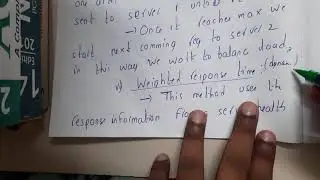 sent to server 1 until it
→ Once it reaches max we
start next comming req to server 2
in this way we wolt to balanc load,
v) Weighted response time:
→ This method uses th
response information flow server health
20